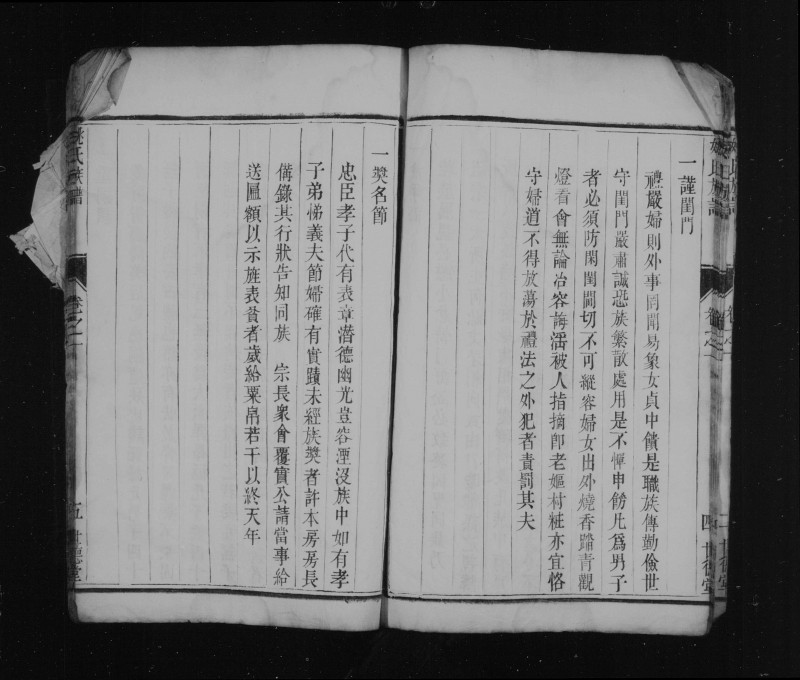 一謹閨門
禮嚴婦則外事罔聞易象女貞中饋是職族傳勤儉世
守閨門嚴肅誠恐族繁散處用是不憚申飭凡爲男子
者必須防閑閨閫切不可縱容婦女出外燒香踏青觀
燈看會無論冶容誨滛被人指摘卽老嫗村粧亦宜恪
守婦道不得放蕩於禮法之外犯者責罰其夫
一奬名節
忠臣孝子代有表章潛德幽光豈容湮沒族中如有孝
子弟悌義夫節婦確有實蹟未經族奬者許本房房長
備錄其行狀吿知同族 宗長衆會覆實公請當事給
送匾額以示旌表貧者歲給粟帛若干以終天年
姚氏族譜 卷之一 五 世德堂